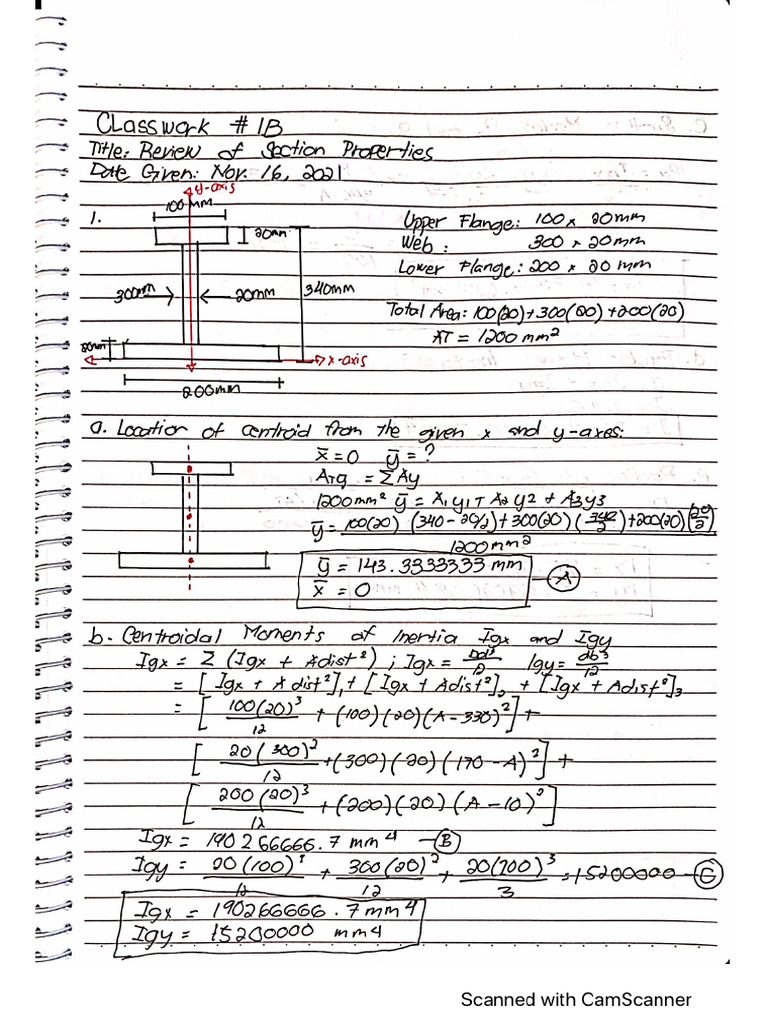 Classwork # 1B
Title: Review of Section Properties
Date Given: Nov. 16, 2021
y-axis
100 mm
1.
20mm
Upper Flange: 100 x 20mm
Web : 300 x 20mm
Lower Flange: 200 x 20 mm
300mm
20mm
340mm
Total Area: 100(20)+300(20)+200(20)
AT = 1200 mm²
20mm
x-axis
200mm
a. Location of centroid from the given x and y-axes:
x̅ = 0 y̅ = ?
ATy̅ = ΣAy
1200mm² y̅ = A₁y₁+ A₂y2 + A₃y3
y̅ = 100(20) (340-20/2)+300(20)(340/2)+200(20)(20/2)
1200mm²
y̅ = 143.3333333 mm
A
x̅ = 0
b. Centroidal Moments of Inertia Igx and Igy
Igx = Σ (Igx + Adist²) ; Igx = bd³/12 Igy= db³/12
= [Igx + Adist²]₁+[Igx + Adist²]₂ + [Igx + Adist²]₃
= [100(20)³/12 + (100)(20)(A-330)²] +
[20(300)²/12 +(300)(20)(170-A)²] +
[200(20)³/12 +(200)(20)(A-10)²]
Igx = 190266666.7 mm4 B
Igy = 20(100)³/12 + 300(20)²/12 + 20(200)³/3 = 15200000 C
Igx = 190266666.7mm4
Igy = 15200000 mm4
Scanned with CamScanner